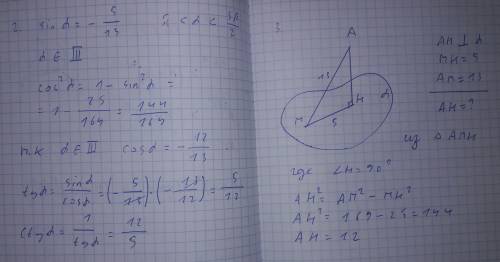 2. sin α = - 5/13   π < α < 3π/2
α ∈ III
cos²α = 1 - sin²α =
= 1 - 25/169 = 144/169
т.к α ∈ III cos α = - 12/13
tg α = sin α / cos α = (- 5/13) · (- 13/12) = 5/12
ctg α = 1/tg α = 12/5
3.
A
13
H
α
M
5
AH ⊥ α
MH = 5
AM = 13
AH = ?
из △ AMH
где ∠H = 90°
AH² = AM² - MH²
AH² = 169 - 25 = 144
AH = 12